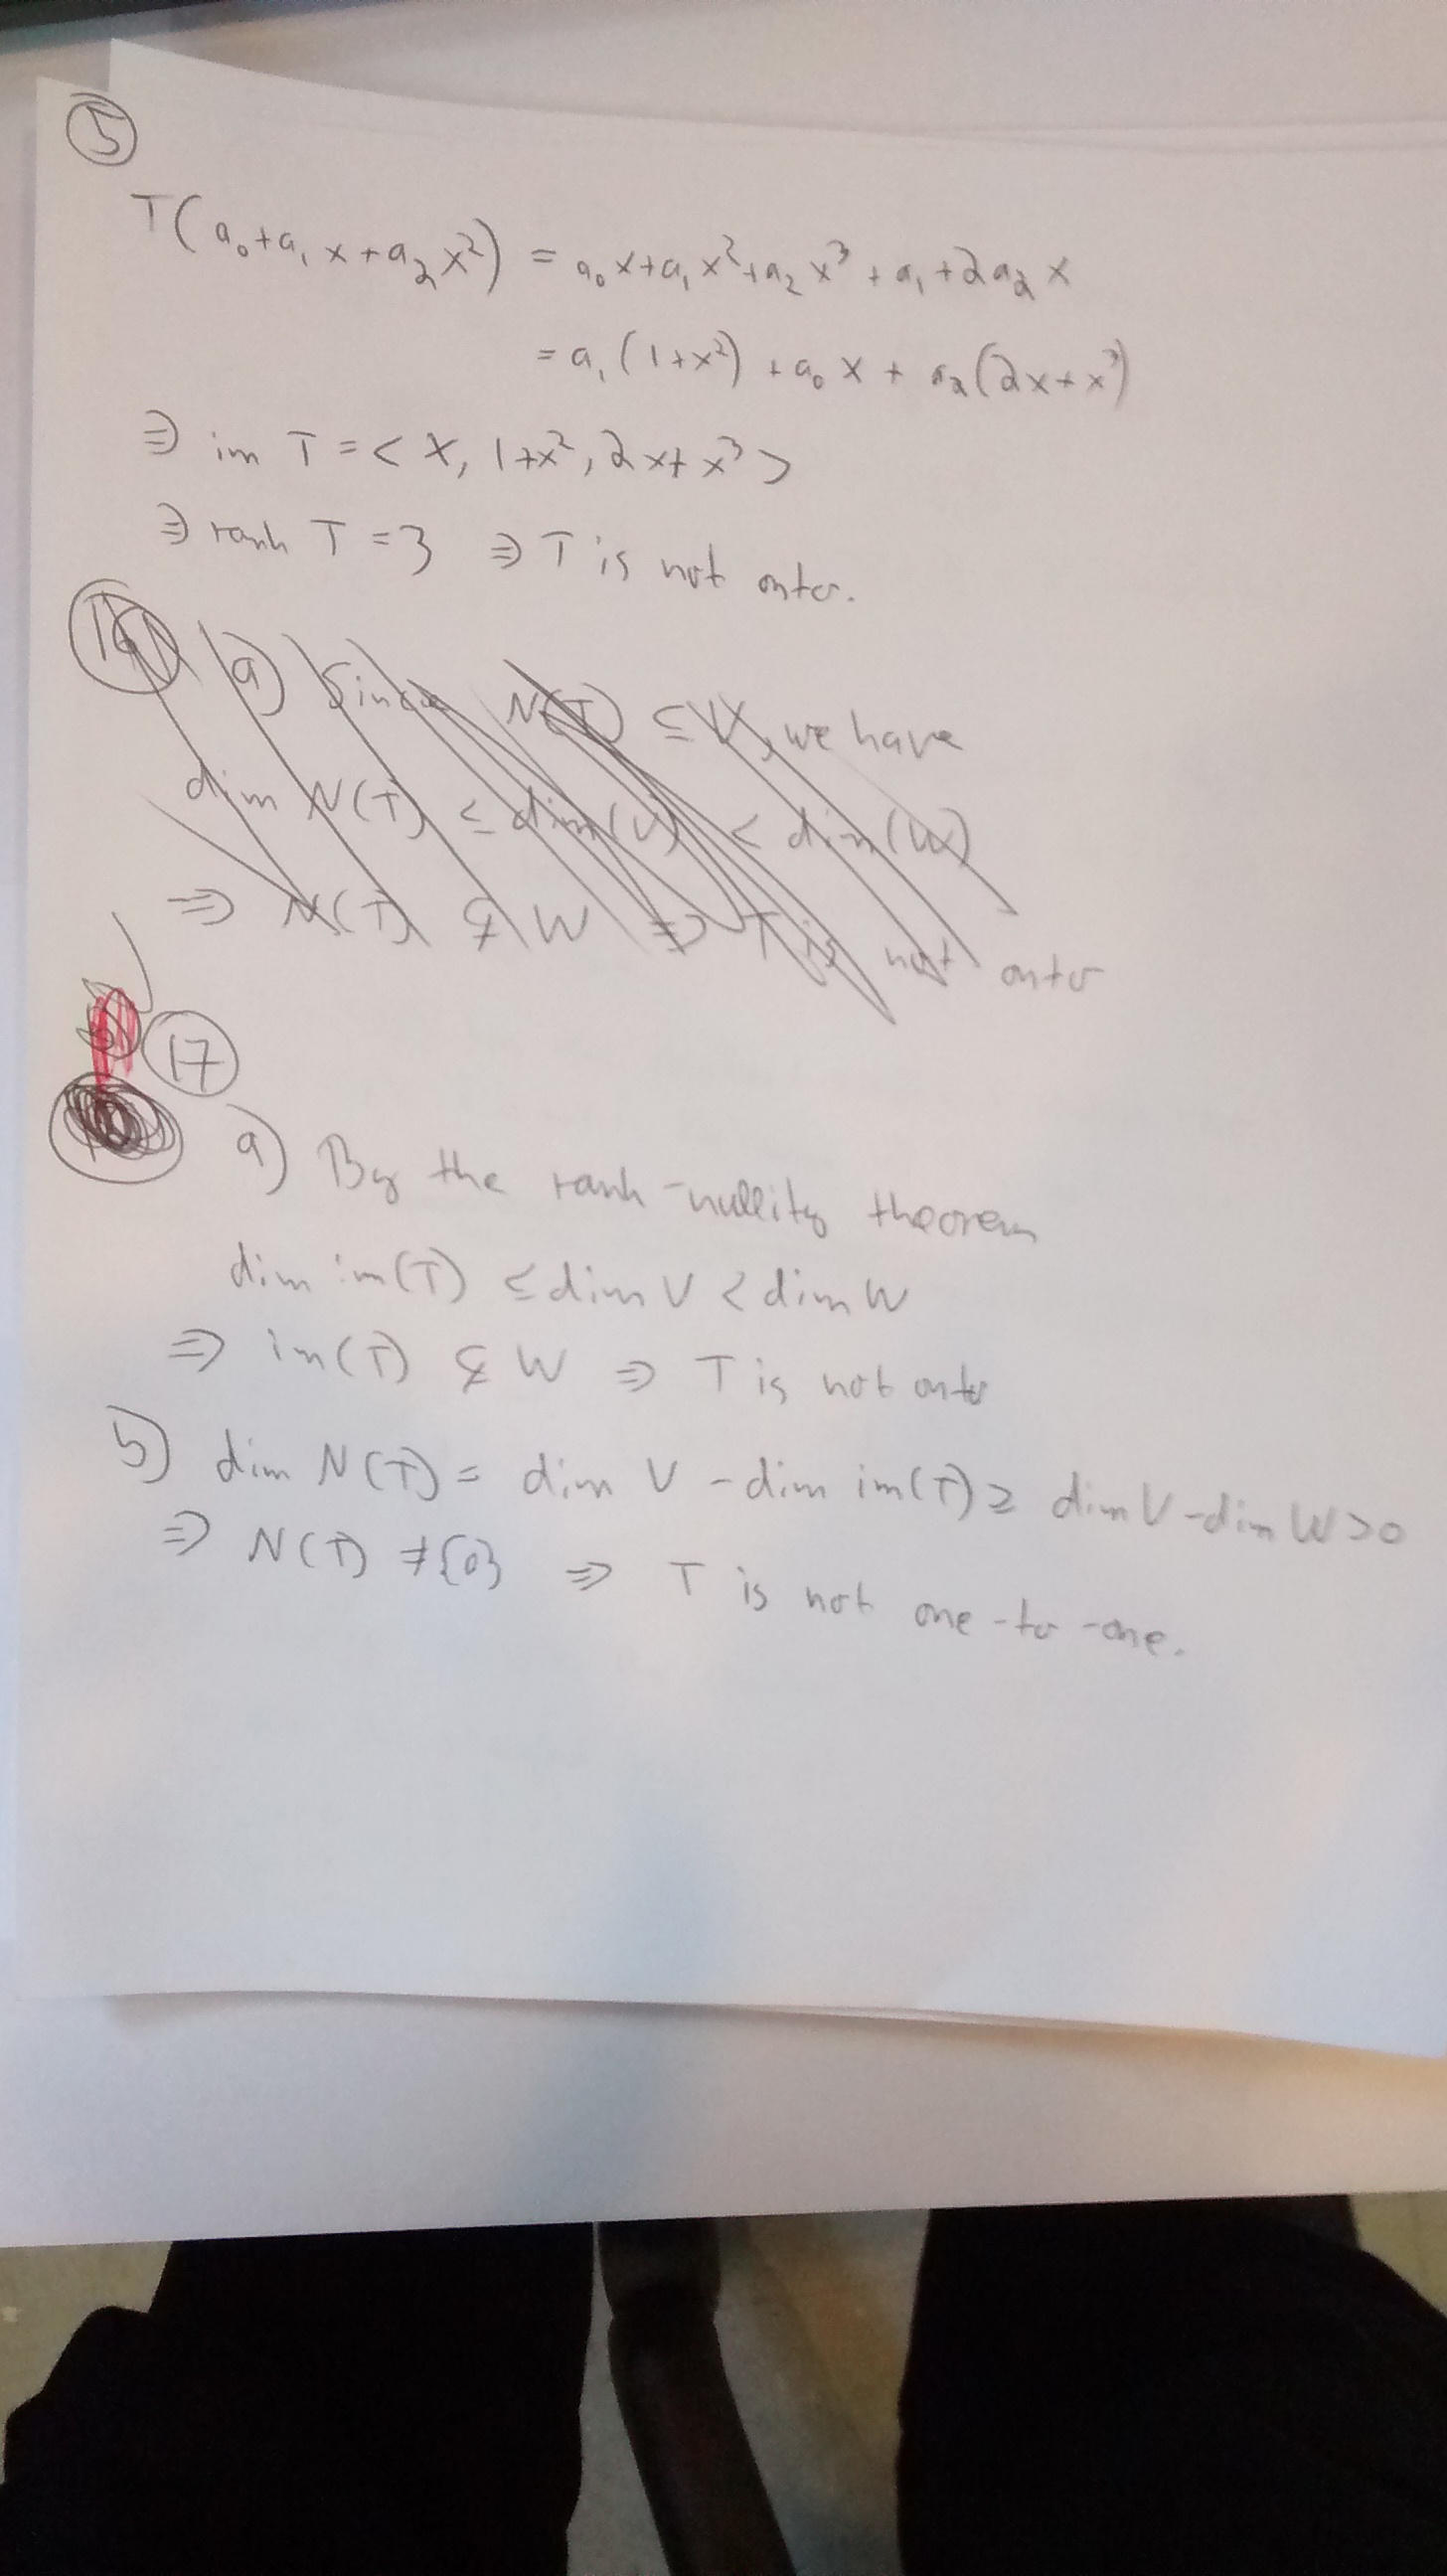 5
T(a₀+a₁x+a₂x²) = a₀x+a₁x²+a₂x³+a₁+2a₂x
= a₁(1+x²)+a₀x+a₂(2x+x³)
⇒ im T = < x, 1+x², 2x+x³ >
⇒ rank T = 3 ⇒ T is not onto.
16 a) Since N(T) ⊆ V, we have
dim N(T) ≤ dim(V) < dim(W)
⇒ N(T) ⊊ W ⇒ T is not onto
17
a) By the rank-nullity theorem
dim im(T) ≤ dim V < dim W
⇒ im(T) ⊊ W ⇒ T is not onto
b) dim N(T) = dim V - dim im(T) ≥ dim V - dim W > 0
⇒ N(T) ≠ {0} ⇒ T is not one-to-one.